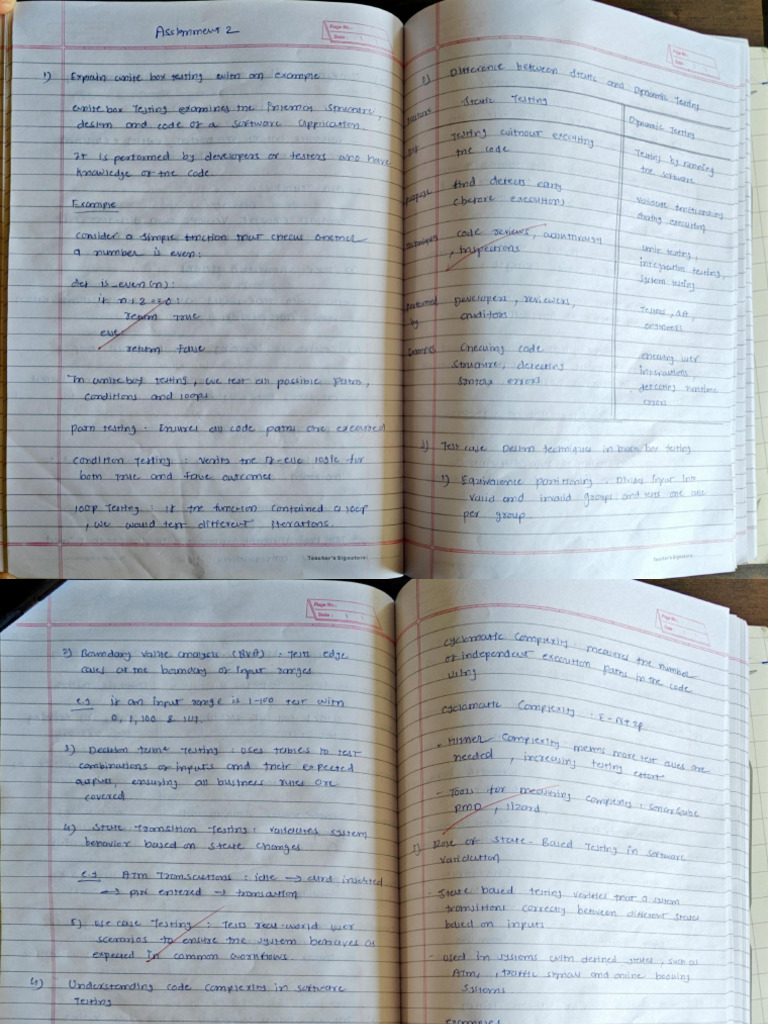 Assignment 2
Page No.:
Date:
1) Explain white box testing with an example
white box testing examines the internal structure,
design and code of a software application.
It is performed by developers or testers who have
knowledge of the code.
Example
consider a simple function that checks whether
a number is even:
def is_even(n):
if n%2==0:
return true
else:
return false
In white box testing, we test all possible paths,
conditions and loops
path testing: Ensures all code paths are executed
condition testing: verify the if-else logic for
both true and false outcomes
loop testing: if the function contained a loop
, we would test different iterations.
Teacher's Signature:
Page No.:
Date:
2) Difference between static and Dynamic Testing
Static Testing
Dynamic Testing
Testing without executing
the code
Testing by running
the software
find defects early
(before execution)
validate functionality
during execution
code reviews, walkthrough
, inspections
unit testing,
integration testing,
system testing
Performed
by
Developers, reviewers,
auditors
Testers, QA
engineers
Examples
checking code
structure, detecting
syntax errors
checking user
interactions,
detecting runtime
errors
3) Test case Design techniques in black box testing
1) Equivalence partitioning: Divides input into
valid and invalid groups and tests one case
per group
Teacher's Signature:
Page No.:
Date:
2) Boundary value analysis (BVA): Tests edge
cases at the boundary of input ranges
e.g if an input range is 1-100 test with
0, 1, 100 & 101.
3) Decision table Testing: uses tables to test
combinations of inputs and their expected
outputs, ensuring all business rules are
covered
4) State Transition Testing: validates system
behavior based on state changes
e.g ATM Transactions: idle → card inserted
→ pin entered → transaction
5) use case Testing: Tests real-world user
scenarios to ensure the system behaves as
expected in common workflows.
4) Understanding code complexity in software
Testing
Page No.:
Date:
cyclomatic complexity: measures the number
of independent execution paths in the code
using
cyclomatic complexity: E-N+2P
• Higher complexity means more test cases are
needed, increasing testing effort
- Tools for measuring complexity: SonarQube
PMD, lizard.
5) Role of State-Based Testing in software
validation
- State based testing verifies that a system
transitions correctly between different states
based on inputs
- used in systems with defined states, such as
ATM, traffic signals and online booking
systems
examples